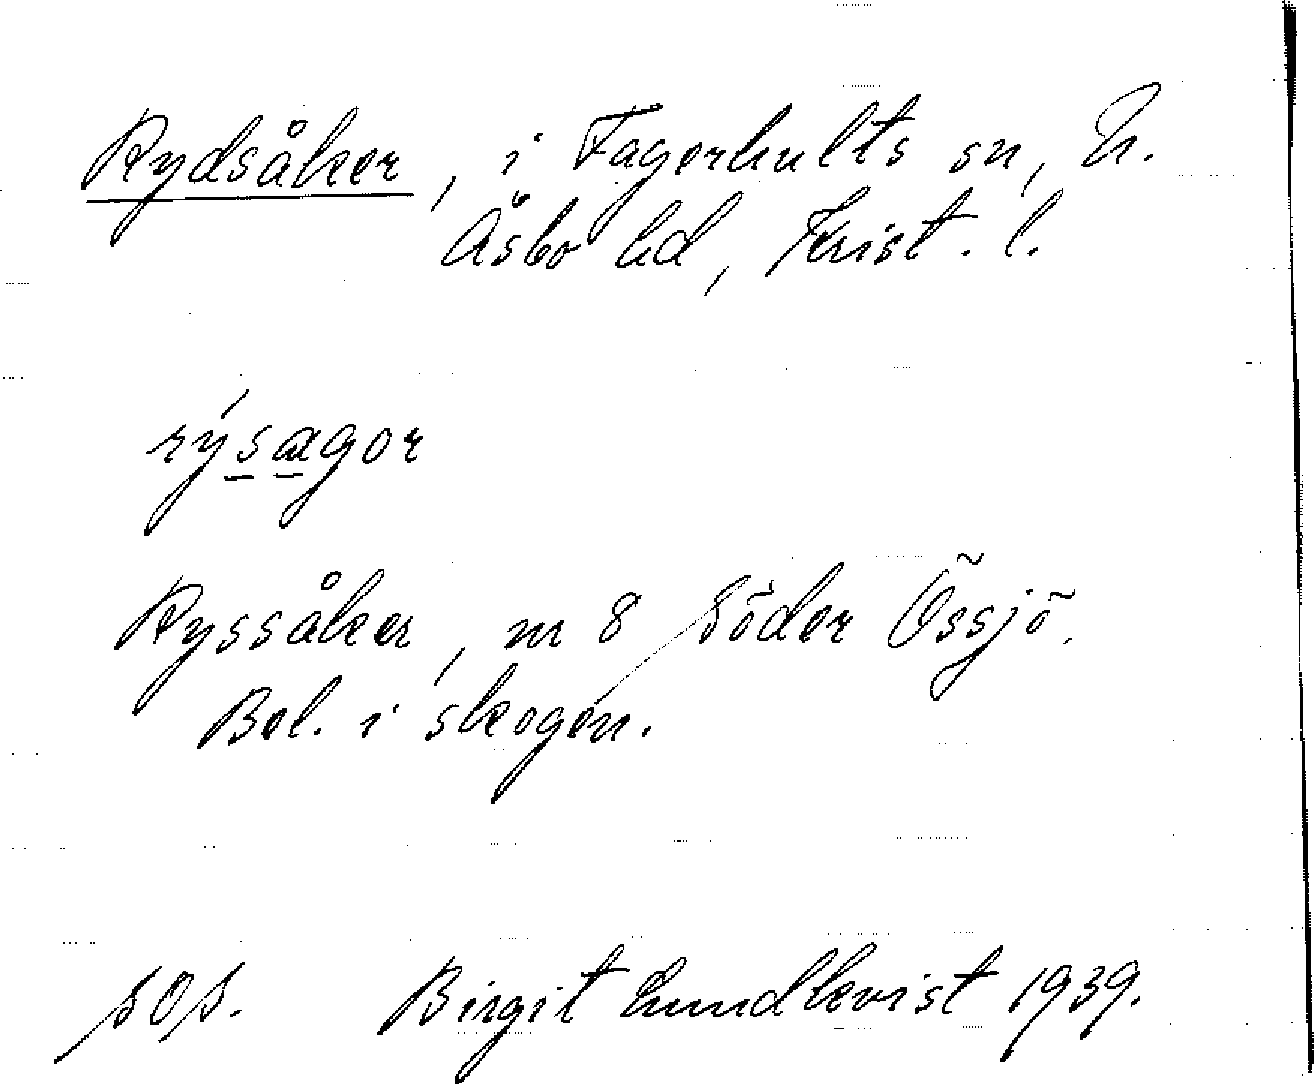 Rydsåker, i Fagerhults sn, N.
Åsbo hd, Krist. l.
rýsagor
Ryssåker, nr 8 Söder Össjö.
Bel. i skogen.
sos. Birgit Lundkvist 1939.